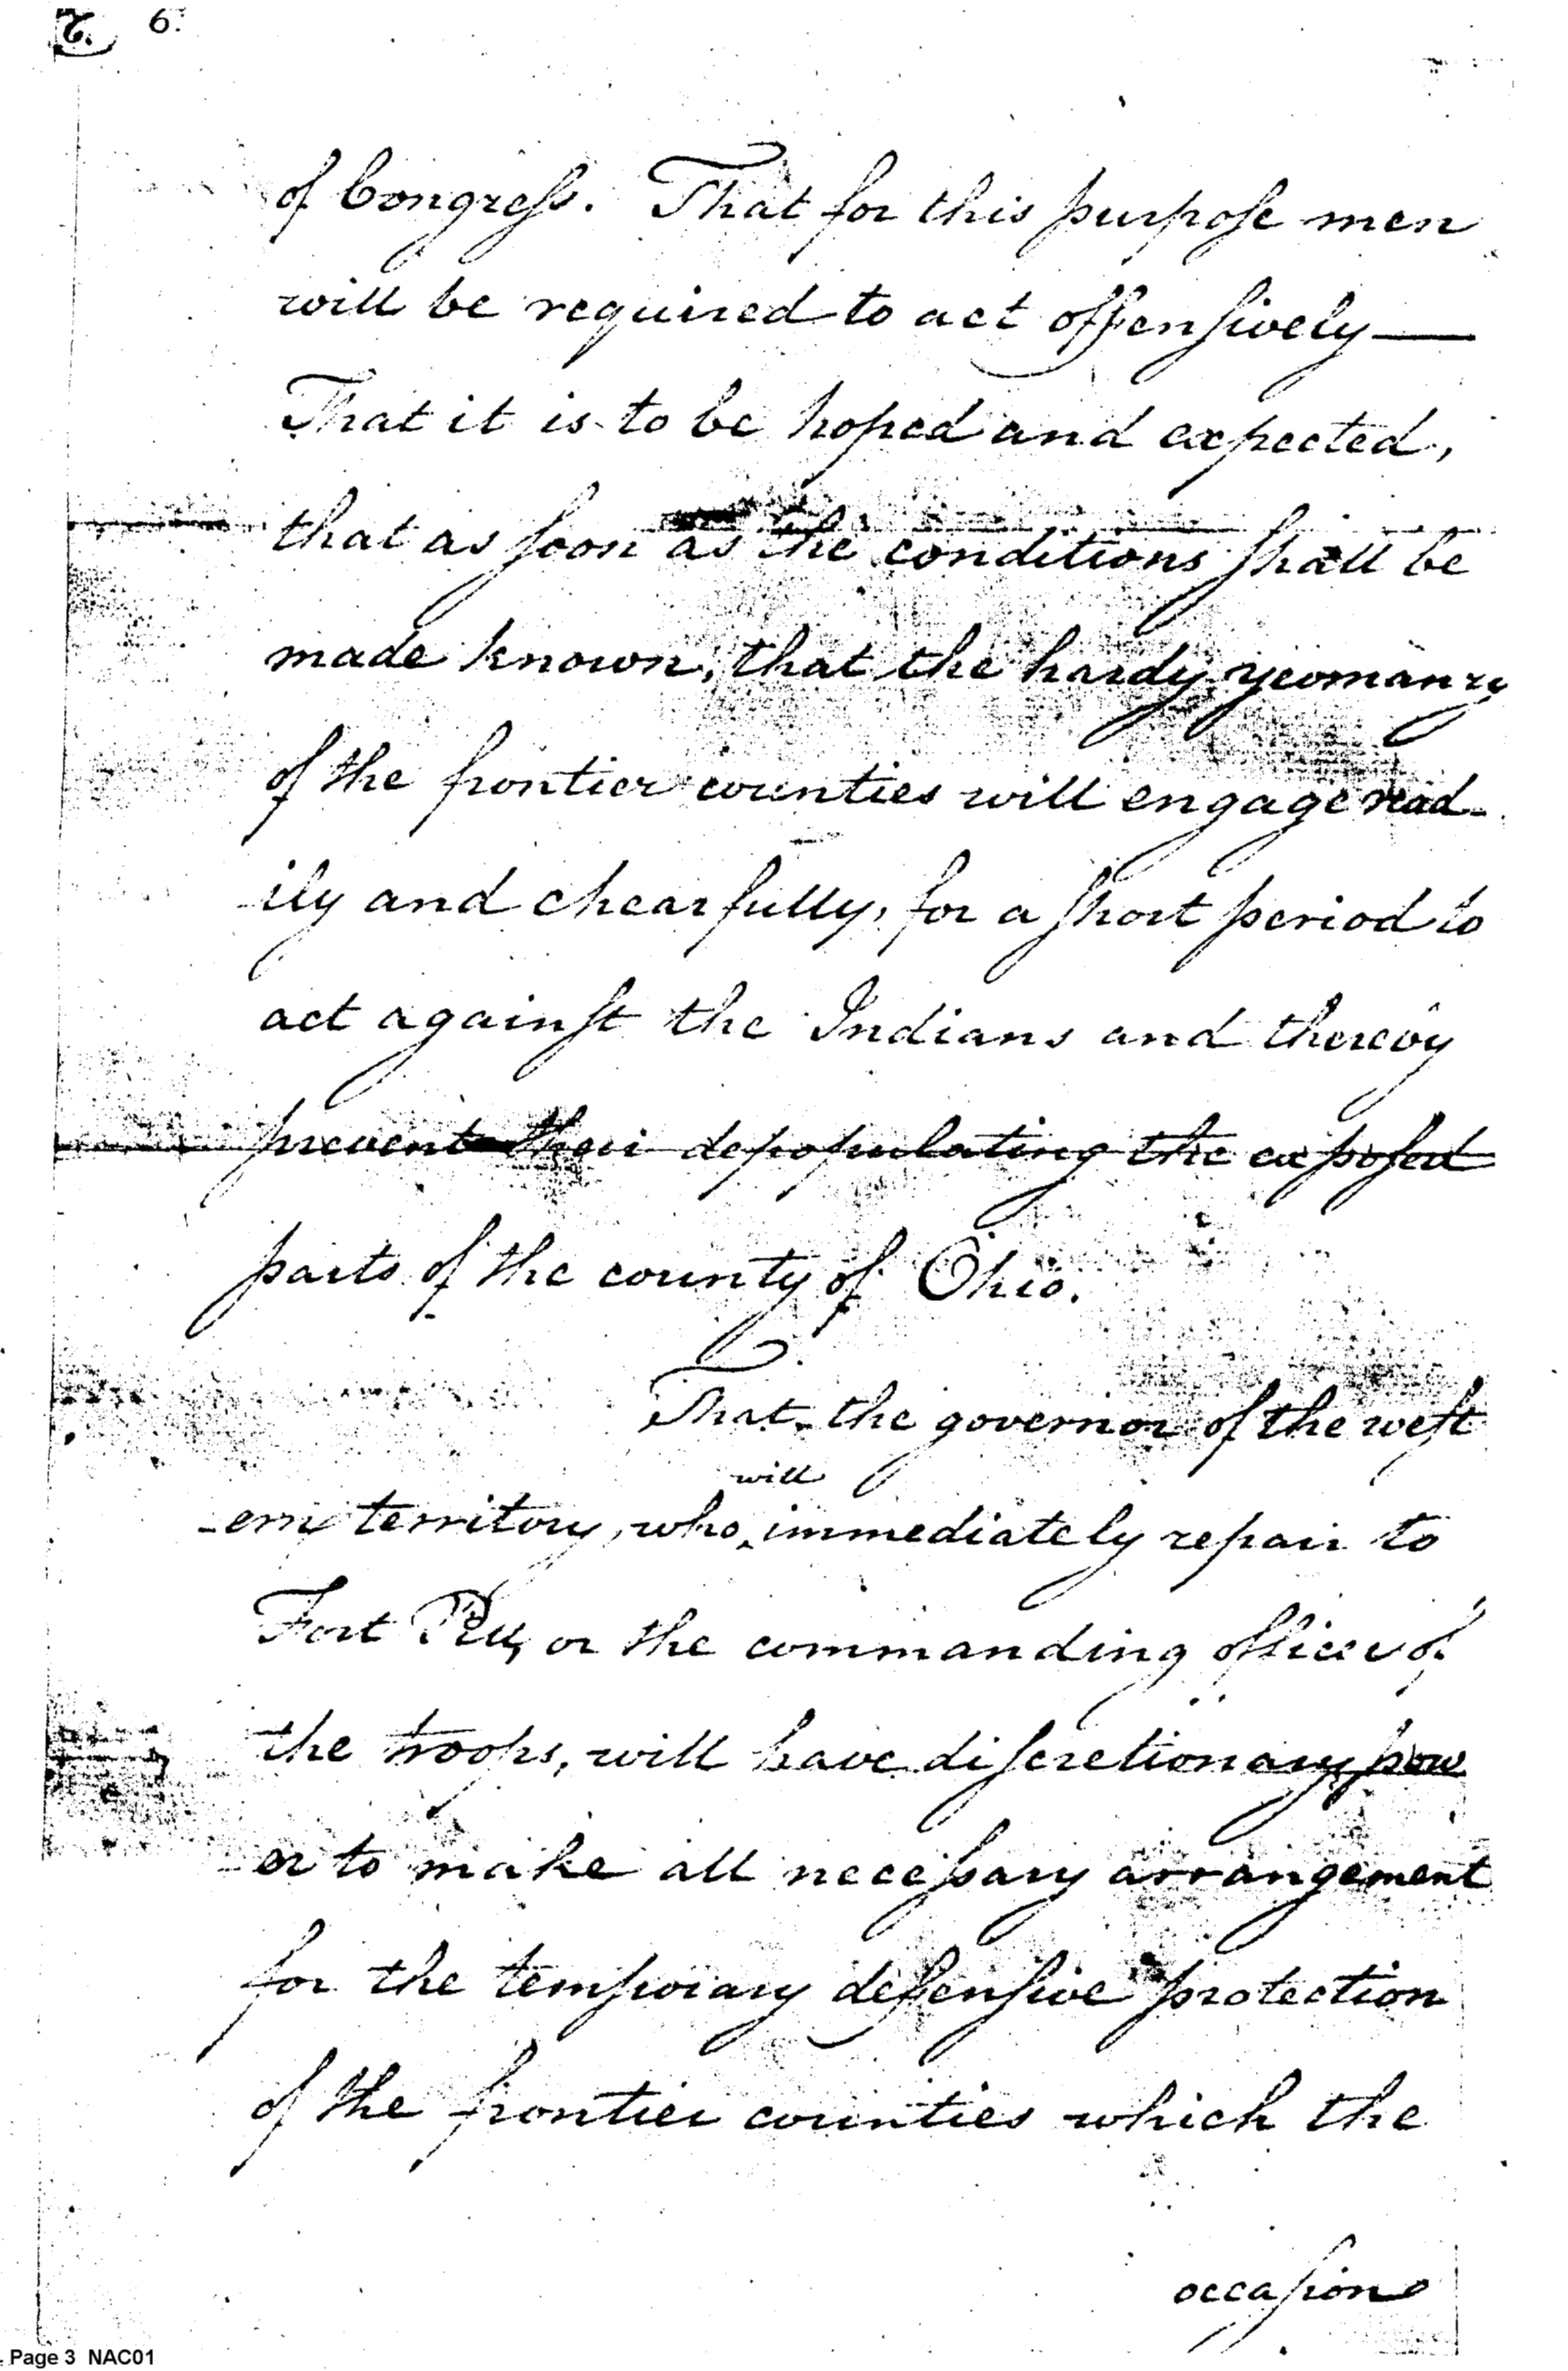 6.
of Congress. That for this purpose men
will be required to act offensively —
That it is to be hoped and expected,
that as soon as the conditions shall be
made known, that the hardy yeomanry
of the frontier counties will engage read-
ily and chearfully, for a short period to
act against the Indians and thereby
prevent their depopulating the exposed
parts of the county of Ohio.
That the governor of the west
will
-ern territory, who immediately repair to
Fort Pitt, or the commanding officer of
the troops, will have discretionary pow
-er to make all necessary arrangement
for the temporary defensive protection
of the frontier counties which the
occasion
Page 3 NAC01